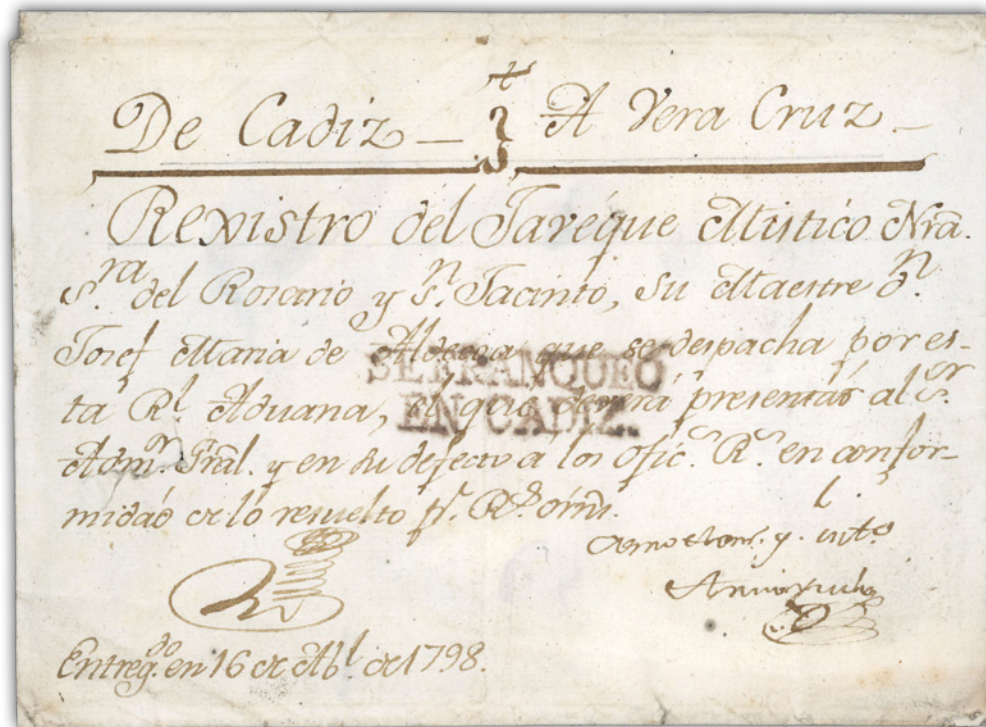 De Cadiz — A Vera Cruz —
Rexistro del Javeque Mistico Nra.
S.ra del Rosario y S.n Jacinto, su Maestre d.n
Josef Maria de que se despacha por es-
ta R.l Aduana, el qual devera presentar al S.or
Adm.r Gral. y en su defecto a los Ofic.s R.s en confor-
midad de lo resuelto p.r R.s órns.
SE FRANQUEÓ
EN CADIZ.
Entreg.do en 16 de Ab.l de 1798.